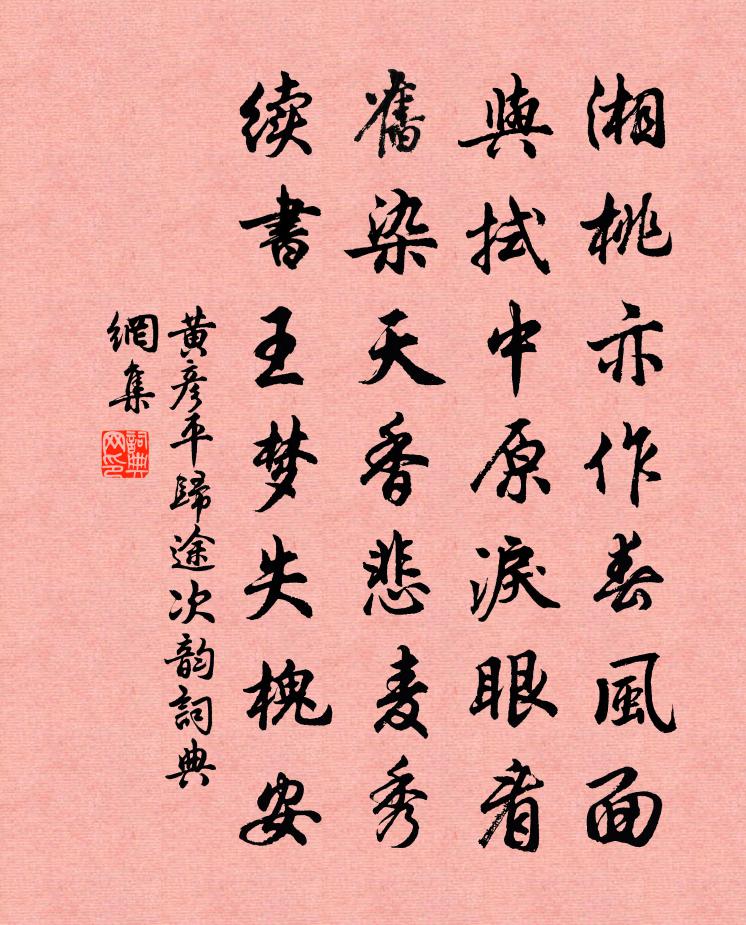 湘桃亦作春風面
與拭中原淚眼看
舊染天香悲麦秀
续書王梦失槐安
黄彦平歸途次韵詞典
網集
詞典網印